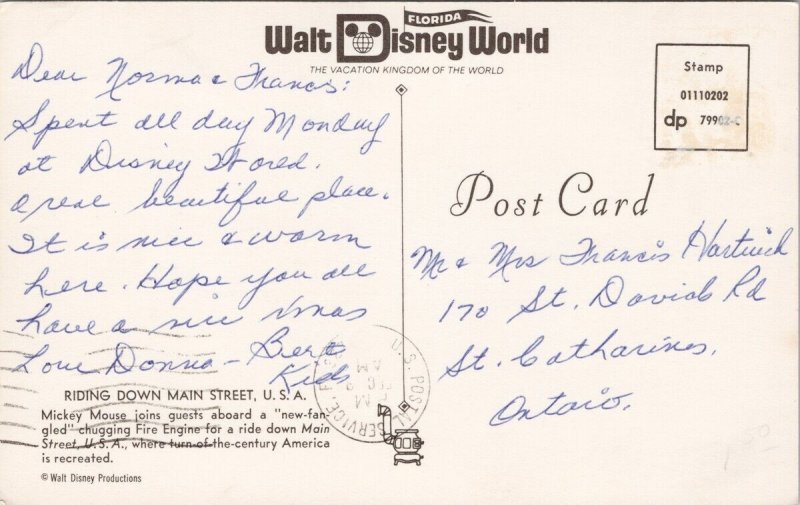 FLORIDA
Walt Disney World
THE VACATION KINGDOM OF THE WORLD
Dear Norma & Francis:
Spent all day Monday
at Disney World.
a real beautiful place.
It is nice & warm
here. Hope you all
have a nice Xmas
Love Donna - Bert
Kids
RIDING DOWN MAIN STREET, U.S.A.
Mickey Mouse joins guests aboard a "new-fan-
gled" chugging Fire Engine for a ride down Main
Street, U.S.A., where turn-of-the-century America
is recreated.
© Walt Disney Productions
U.S. POSTAL SERVICE
PM
AM
Stamp
01110202
dp
Post Card
Mr & Mrs Francis
170 St. Davids Rd
St. Catharines,
Ontario.